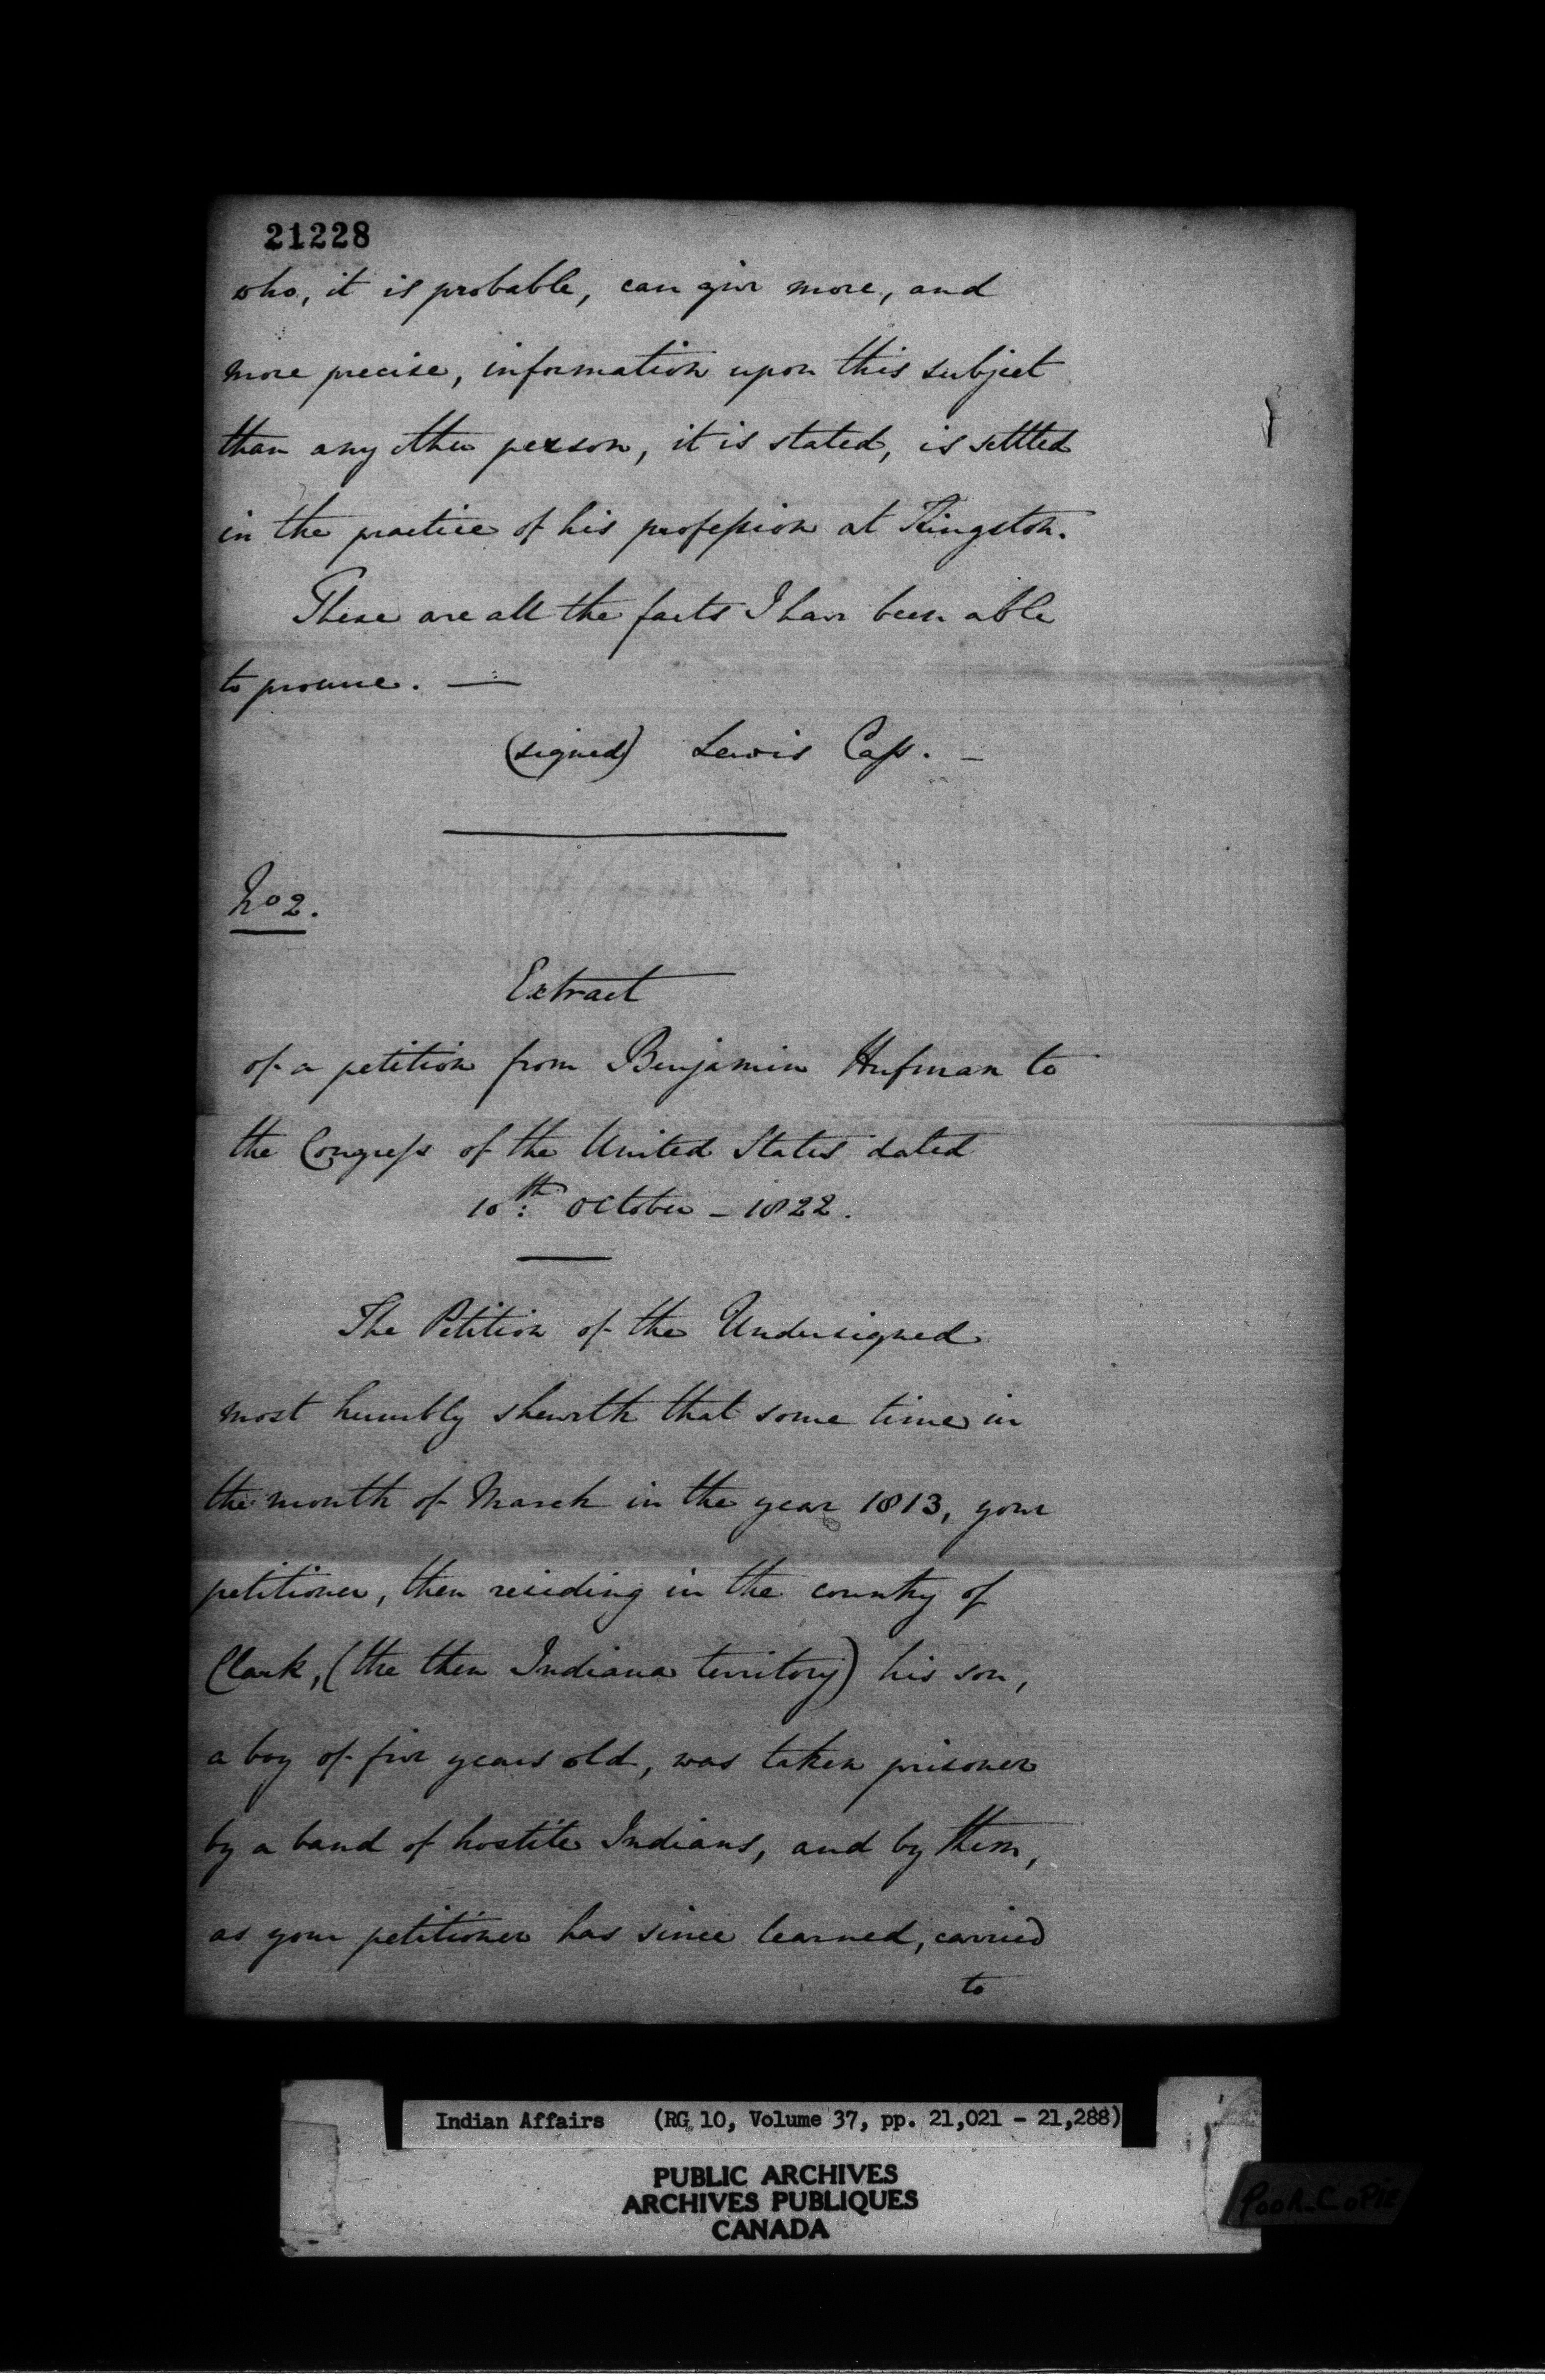 21228
who, it is probable, can give more, and
more precise, information upon this subject
than any other person, it is stated, is settled
in the practice of his profession at Kingston.
These are all the facts I have been able
to procure. —
(signed) Lewis Cass. –
No 2.
Extract
of a petition from Benjamin Hufman to
the Congress of the United States dated
10th: October – 1822.
The Petition of the Undersigned
most humbly sheweth that some time in
the month of March in the year 1813, your
petitioner, then residing in the country of
Clark, (the then Indiana territory) his son,
a boy of five years old, was taken prisoner
by a band of hostile Indians, and by them,
as your petitioner has since learned, carried
to
Indian Affairs (RG 10, Volume 37, pp. 21,021 - 21,288)
PUBLIC ARCHIVES
ARCHIVES PUBLIQUES
CANADA
Poor Copie